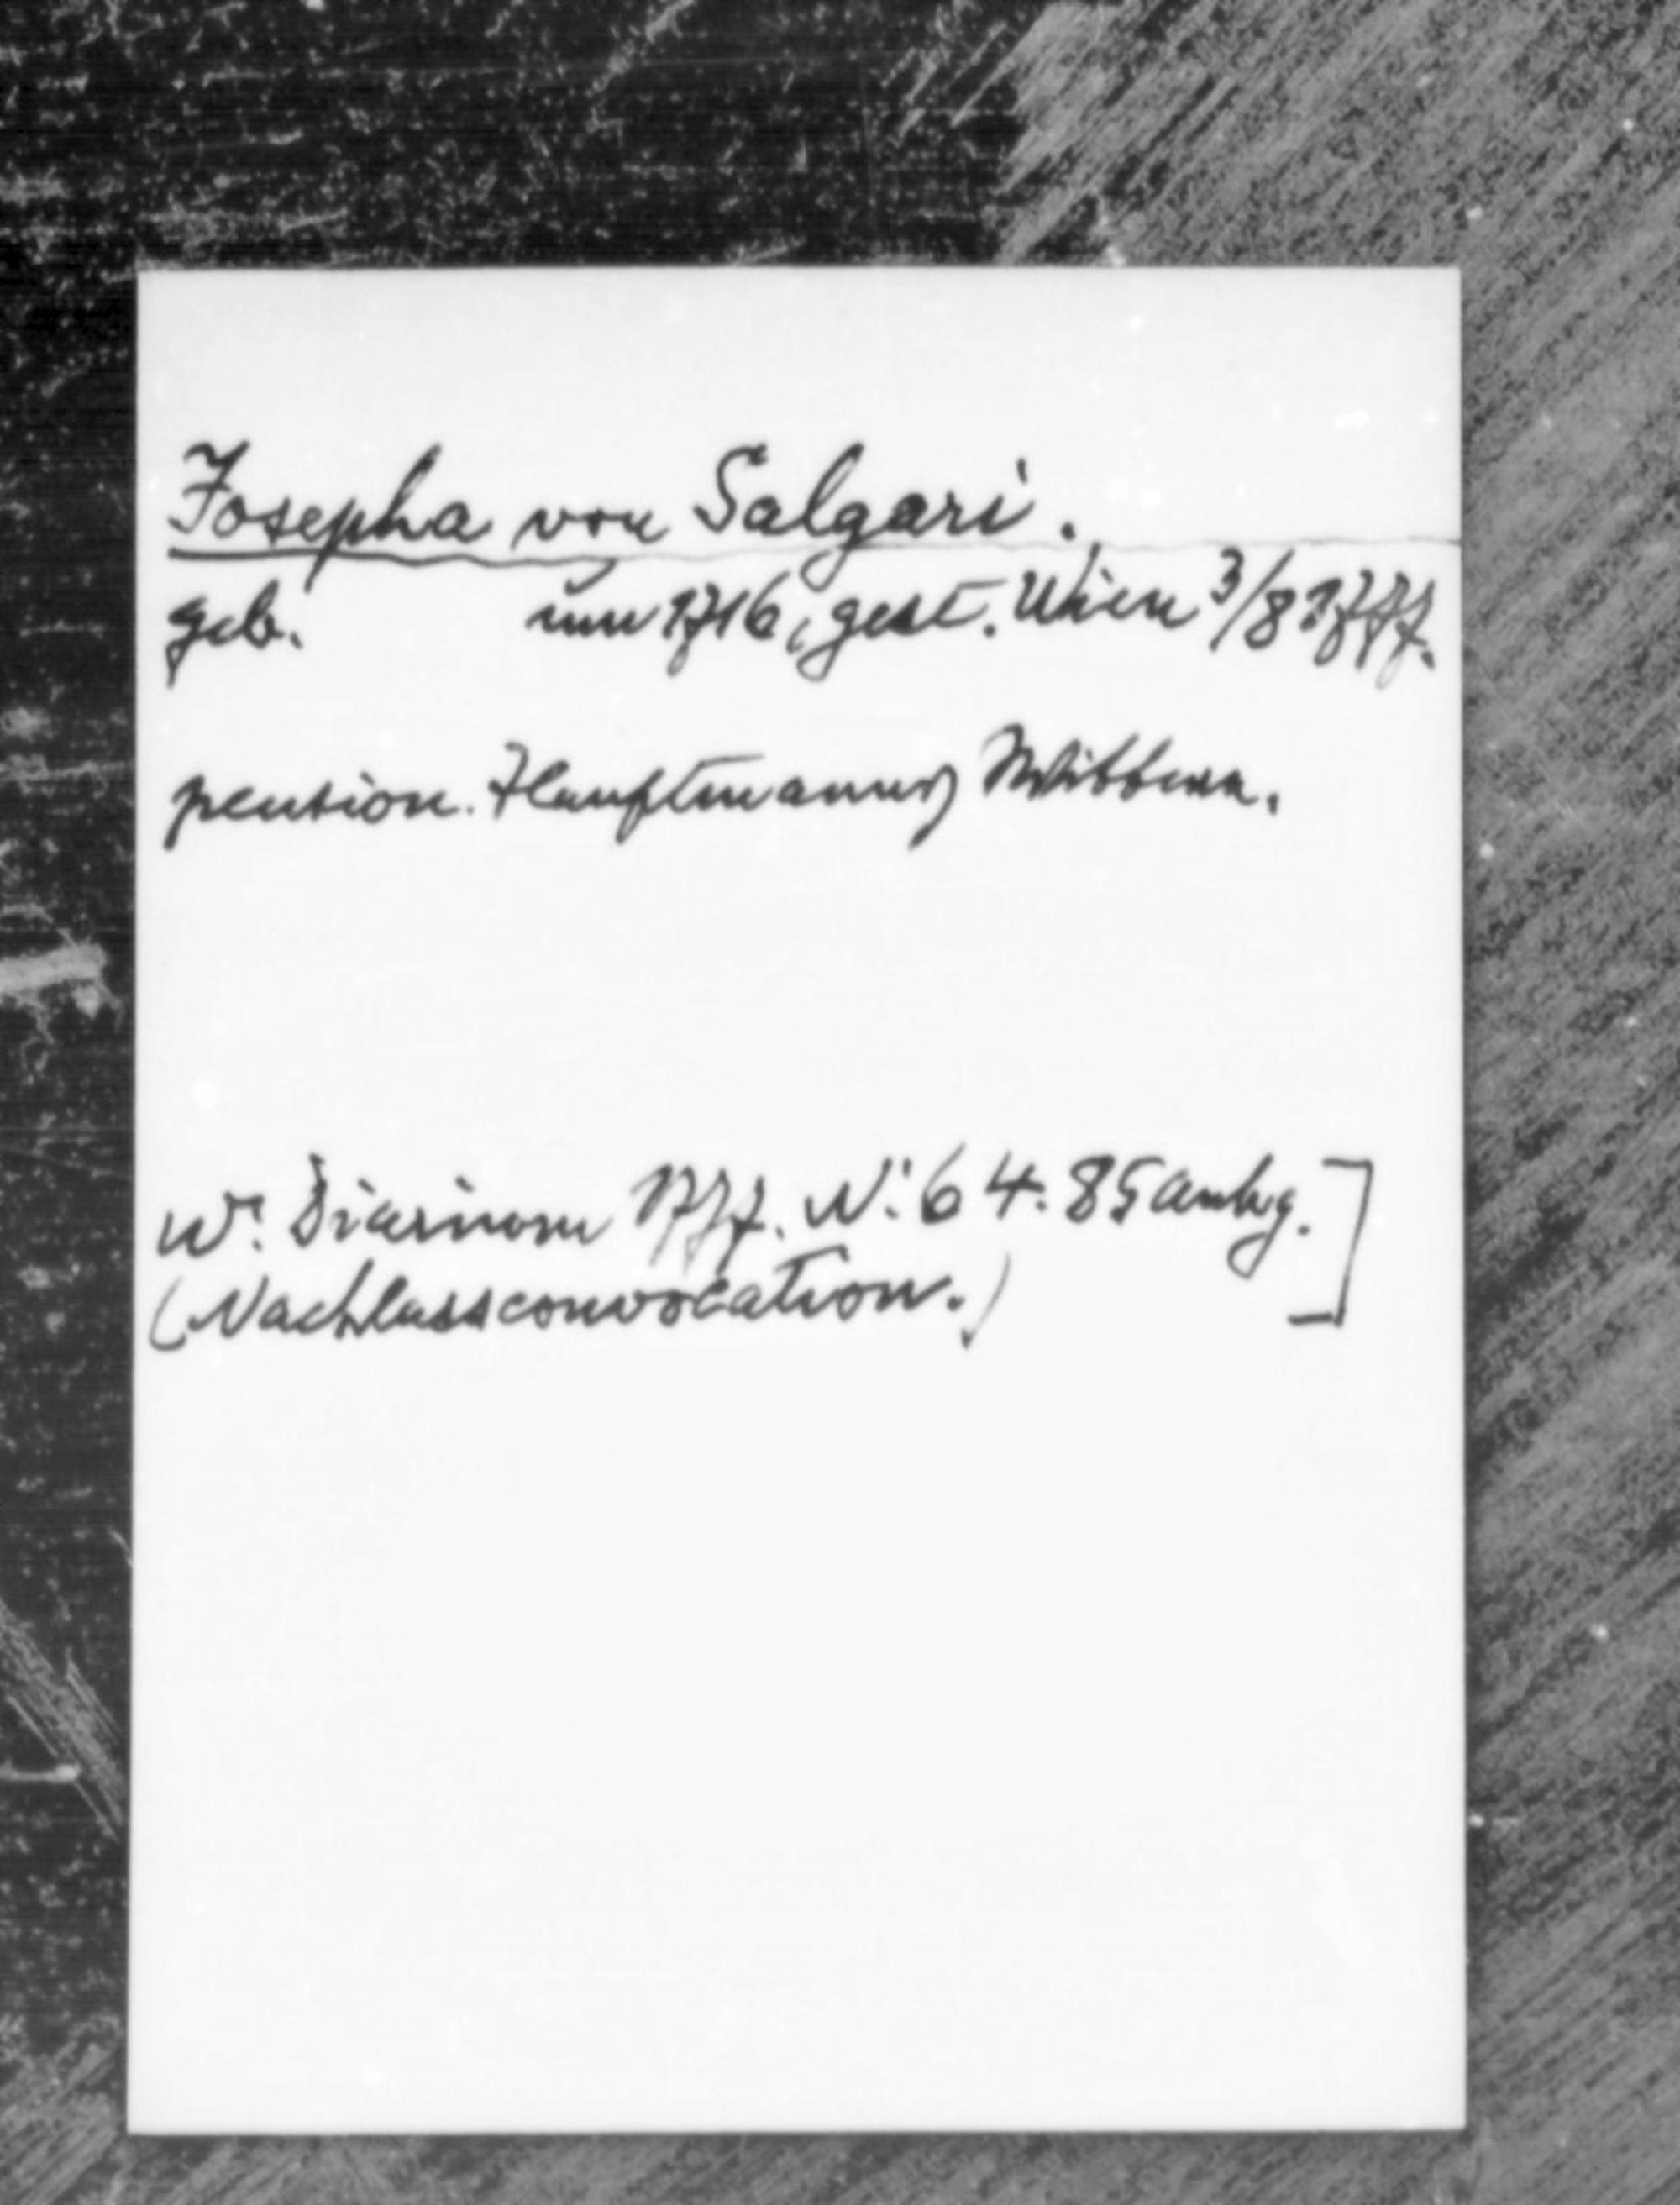 Josepha von Salgari.
geb. um 1716, gest. Wien 3/8 1777.
pension. Hauptmanns Wittwe.
W. Diarium 1777. N: 64. 85 anhg.]
(Nachlassconvocation.)